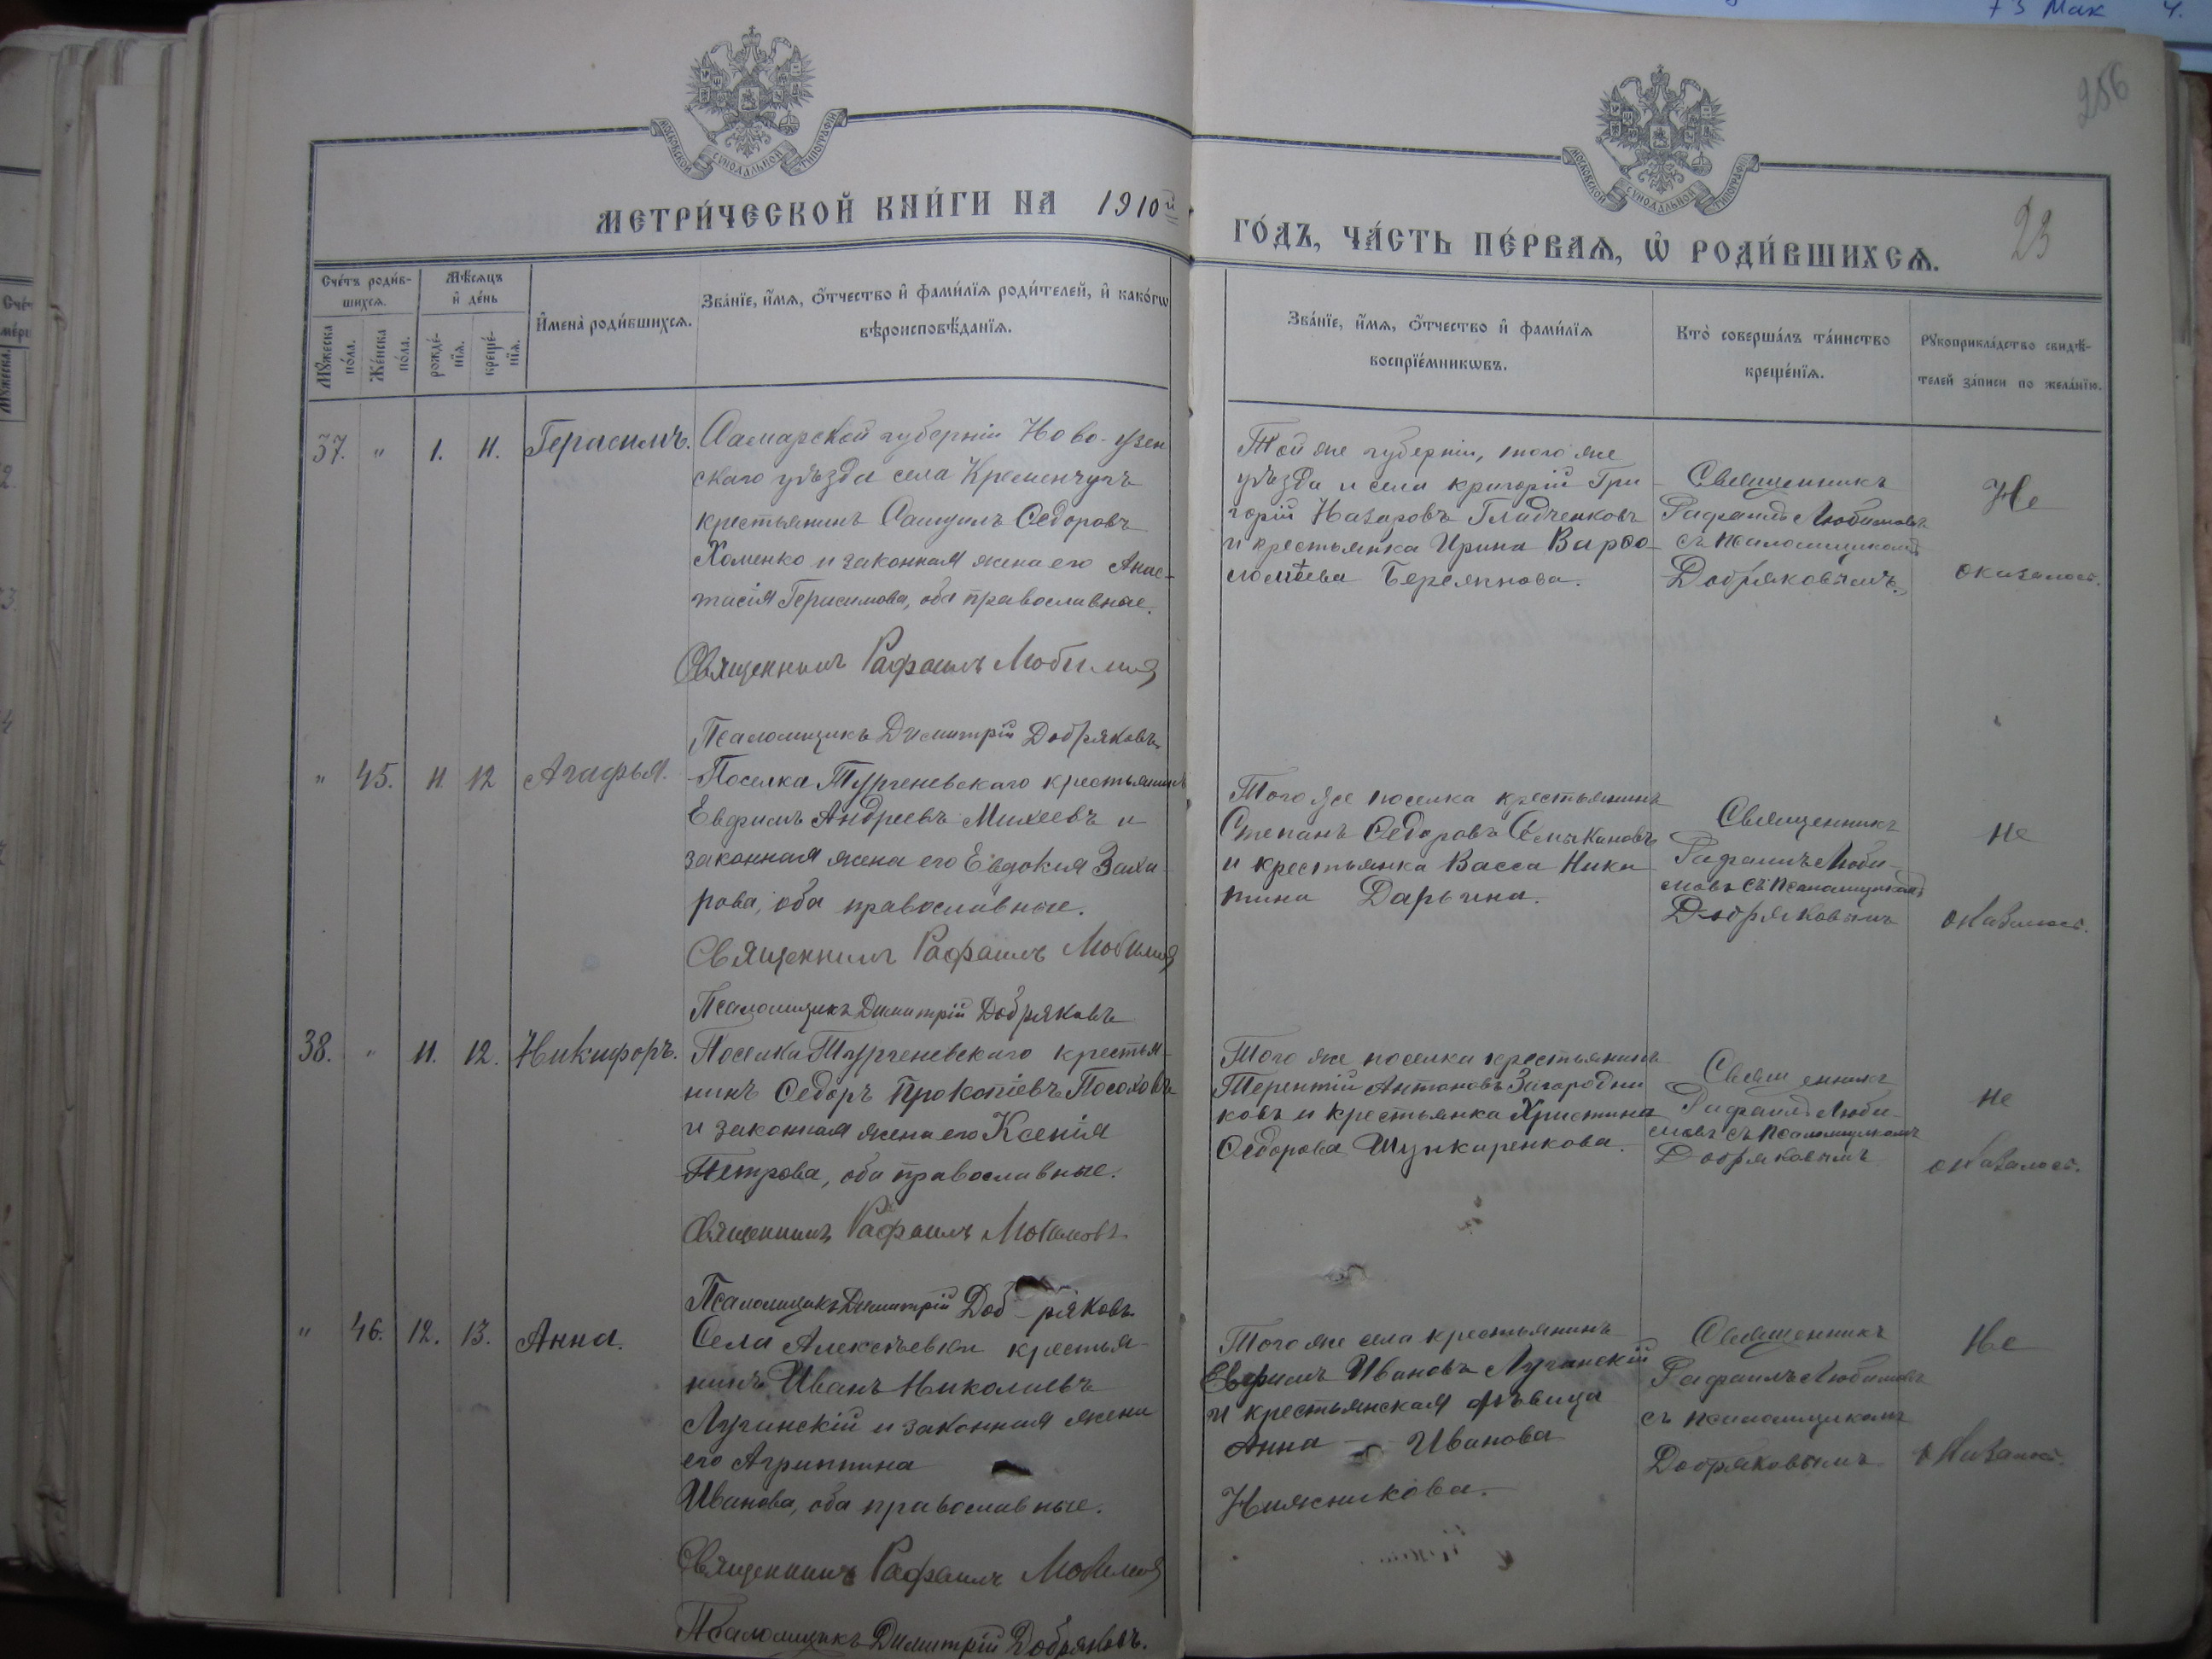 73 Мак 4.
256
23
МОСКОВСКОЙ СѴНОДАЛЬНОЙ ТИПОГРАФІИ
МОСКОВСКОЙ СѴНОДАЛЬНОЙ ТИПОГРАФІИ
МЕТРИ́ЧЕСКОЙ КНИ́ГИ НА 1910й
ГО́ДЪ, ЧА́СТЬ ПЕ́РВАѦ, Ѡ҆ РОДИ́ВШИХСѦ.
Сче́тъ роди́в-
шихсѧ.
Мꙋ́жеска
по́ла.
Же́нска
по́ла.
Мѣ́сѧцъ
и҆ де́нь
рожде́-
нїѧ.
креще́-
нїѧ.
И҆мена̀ роди́вшихсѧ.
Зва́нїе, и҆́мѧ, ѻ҆́тчество и҆ фами́лїѧ роди́телей, и҆ како́гѡ
вѣроисповѣ́данїѧ.
Зва́нїе, и҆́мѧ, ѻ҆́тчество и҆ фами́лїѧ
воспрїе́мникѡвъ.
Кто̀ соверша́лъ та́инство
креще́нїѧ.
Рꙋкоприкла́дство свидѣ́-
телей за́писи по жела́нїю.
37. " 1. 11. Герасимъ.
Самарской губерніи Ново-узен
скаго уѣзда села Кременчугъ
крестьянинъ Самуилъ Ѳедоровъ
Хоменко и законная жена его Анас-
тасія Герасимова, оба православные.
Священникъ Рафаилъ Любимовъ
Псаломщикъ Димитрій Добряковъ
Той же губерніи, того же
уѣзда и села григорій Гри
горій Назаровъ Гладченковъ
и крестьянка Ирина Варѳо-
ломѣева Бережнова.
Священникъ
Рафаилъ Любимовъ
съ псаломщикомъ
Добряковымъ.
Не
оказалось.
" 45. 11. 12 Агафья.
Поселка Тургеневскаго крестьянинъ
Евфимъ Андреевъ Михеевъ и
законная жена его Евдокия Заха
рова, оба православные.
Священникъ Рафаилъ Любимовъ
Псаломщикъ Димитрій Добряковъ
Того же поселка крестьянинъ
Степанъ Ѳедоровъ
и крестьянка Васса Ники
тина Дарьина.
Священникъ
Рафаилъ Люби-
мовъ съ псаломщикомъ
Добряковымъ
не
оказалось.
38. " 11. 12. Никифоръ.
Поселка Тургеневскаго крестья-
нинъ Ѳедоръ Прокопіевъ Посоховъ
и законная жена его Ксенія
Петрова, оба православные.
Священникъ Рафаилъ Любимовъ
Псаломщикъ Димитрій Доб-ряковъ
Того же поселка крестьянинъ
Терентій Антоновъ Загородни
ковъ и крестьянка Христина
Ѳедорова Шункаренкова.
Священникъ
Рафаилъ Люби-
мовъ съ псаломщикомъ
Добряковымъ
не
оказалось.
" 46. 12. 13. Анна.
Села Алексѣевки крестья-
нинъ Иванъ Николаевъ
Лугинскій и законная жена
его Агриппина
Иванова, оба православные.
Священникъ Рафаилъ Любимовъ
Псаломщикъ Димитрій Добряковъ.
Того же села крестьянинъ
Евфимъ Ивановъ Лугинскій
и крестьянская дѣвица
Анна - Иванова
Княжникова.
Священникъ
Рафаилъ Любимовъ
съ псаломщикомъ
Добряковымъ
Не
оказалось.